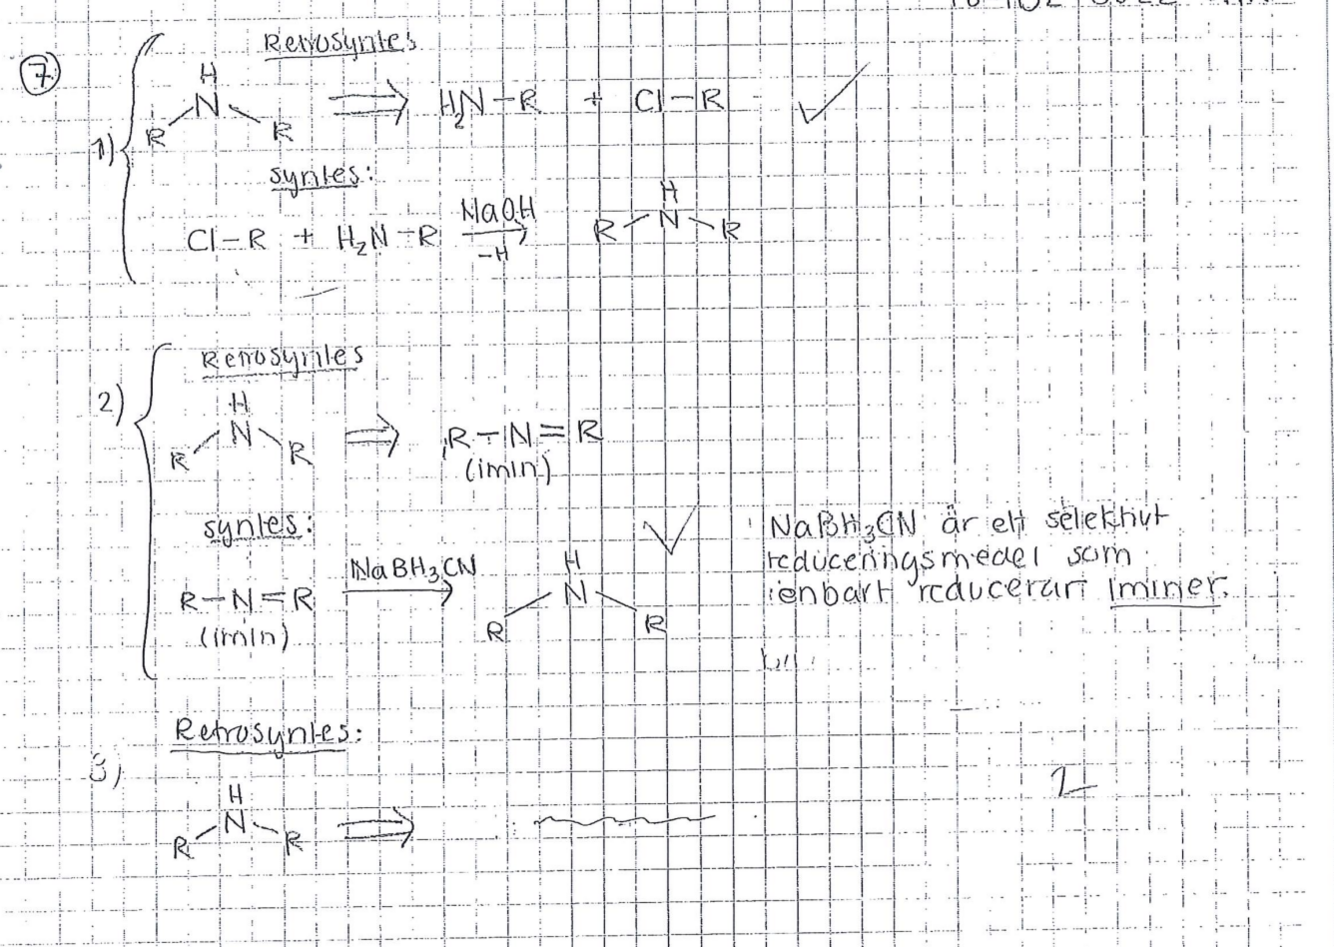 7
Retrosyntes
1)
H
N
R R
⇒ H₂N-R + Cl-R
syntes:
Cl-R + H₂N-R
NaOH
-H
H
N
R R
2)
Retrosyntes
H
N
R R
⇒ R-N=R
(imin)
syntes:
R-N=R
(imin)
NaBH₃CN
H
N
R R
NaBH₃CN är ett selektivt
reduceringsmedel som
enbart reducerar iminer.
3)
Retrosyntes:
H
N
R R
⇒
2